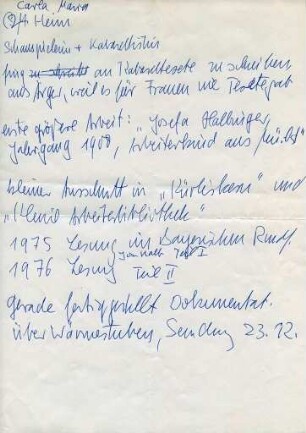 Carla Maria
Heim
Schauspielerin + Kabarettistin
fing an Kabaretttexte zu schreiben
aus Ärger, weil es für Frauen nie Texte gab
erste größere Arbeit: "Josefa Halbinger,
Jahrgang 1900, Arbeiterkind aus
kleiner Ausschnitt in "Kürbiskern" und
"Kleine Arbeiterbibliothek"
1975 Lesung im Bayerischen Rundf.
1976 Lesung Teil II
gerade fertiggestellt Dokumentat.
über Wärmestuben, Sendung 23.12.